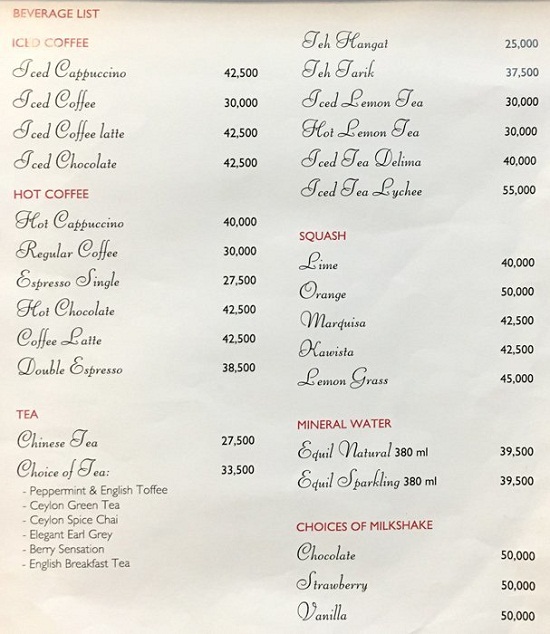 BEVERAGE LIST
ICED COFFEE
Iced Cappuccino 42,500
Iced Coffee 30,000
Iced Coffee latte 42,500
Iced Chocolate 42,500
HOT COFFEE
Hot Cappuccino 40,000
Regular Coffee 30,000
Espresso Single 27,500
Hot Chocolate 42,500
Coffee Latte 42,500
Double Espresso 38,500
TEA
Chinese Tea 27,500
Choice of Tea: 33,500
- Peppermint & English Toffee
- Ceylon Green Tea
- Ceylon Spice Chai
- Elegant Earl Grey
- Berry Sensation
- English Breakfast Tea
Teh Hangat 25,000
Teh Tarik 37,500
Iced Lemon Tea 30,000
Hot Lemon Tea 30,000
Iced Tea Delima 40,000
Iced Tea Lychee 55,000
SQUASH
Lime 40,000
Orange 50,000
Marquisa 42,500
Kawista 42,500
Lemon Grass 45,000
MINERAL WATER
Equil Natural 380 ml 39,500
Equil Sparkling 380 ml 39,500
CHOICES OF MILKSHAKE
Chocolate 50,000
Strawberry 50,000
Vanilla 50,000